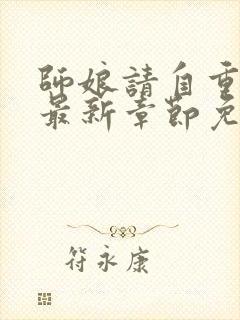 師娘請自重
最新章節免
符永康